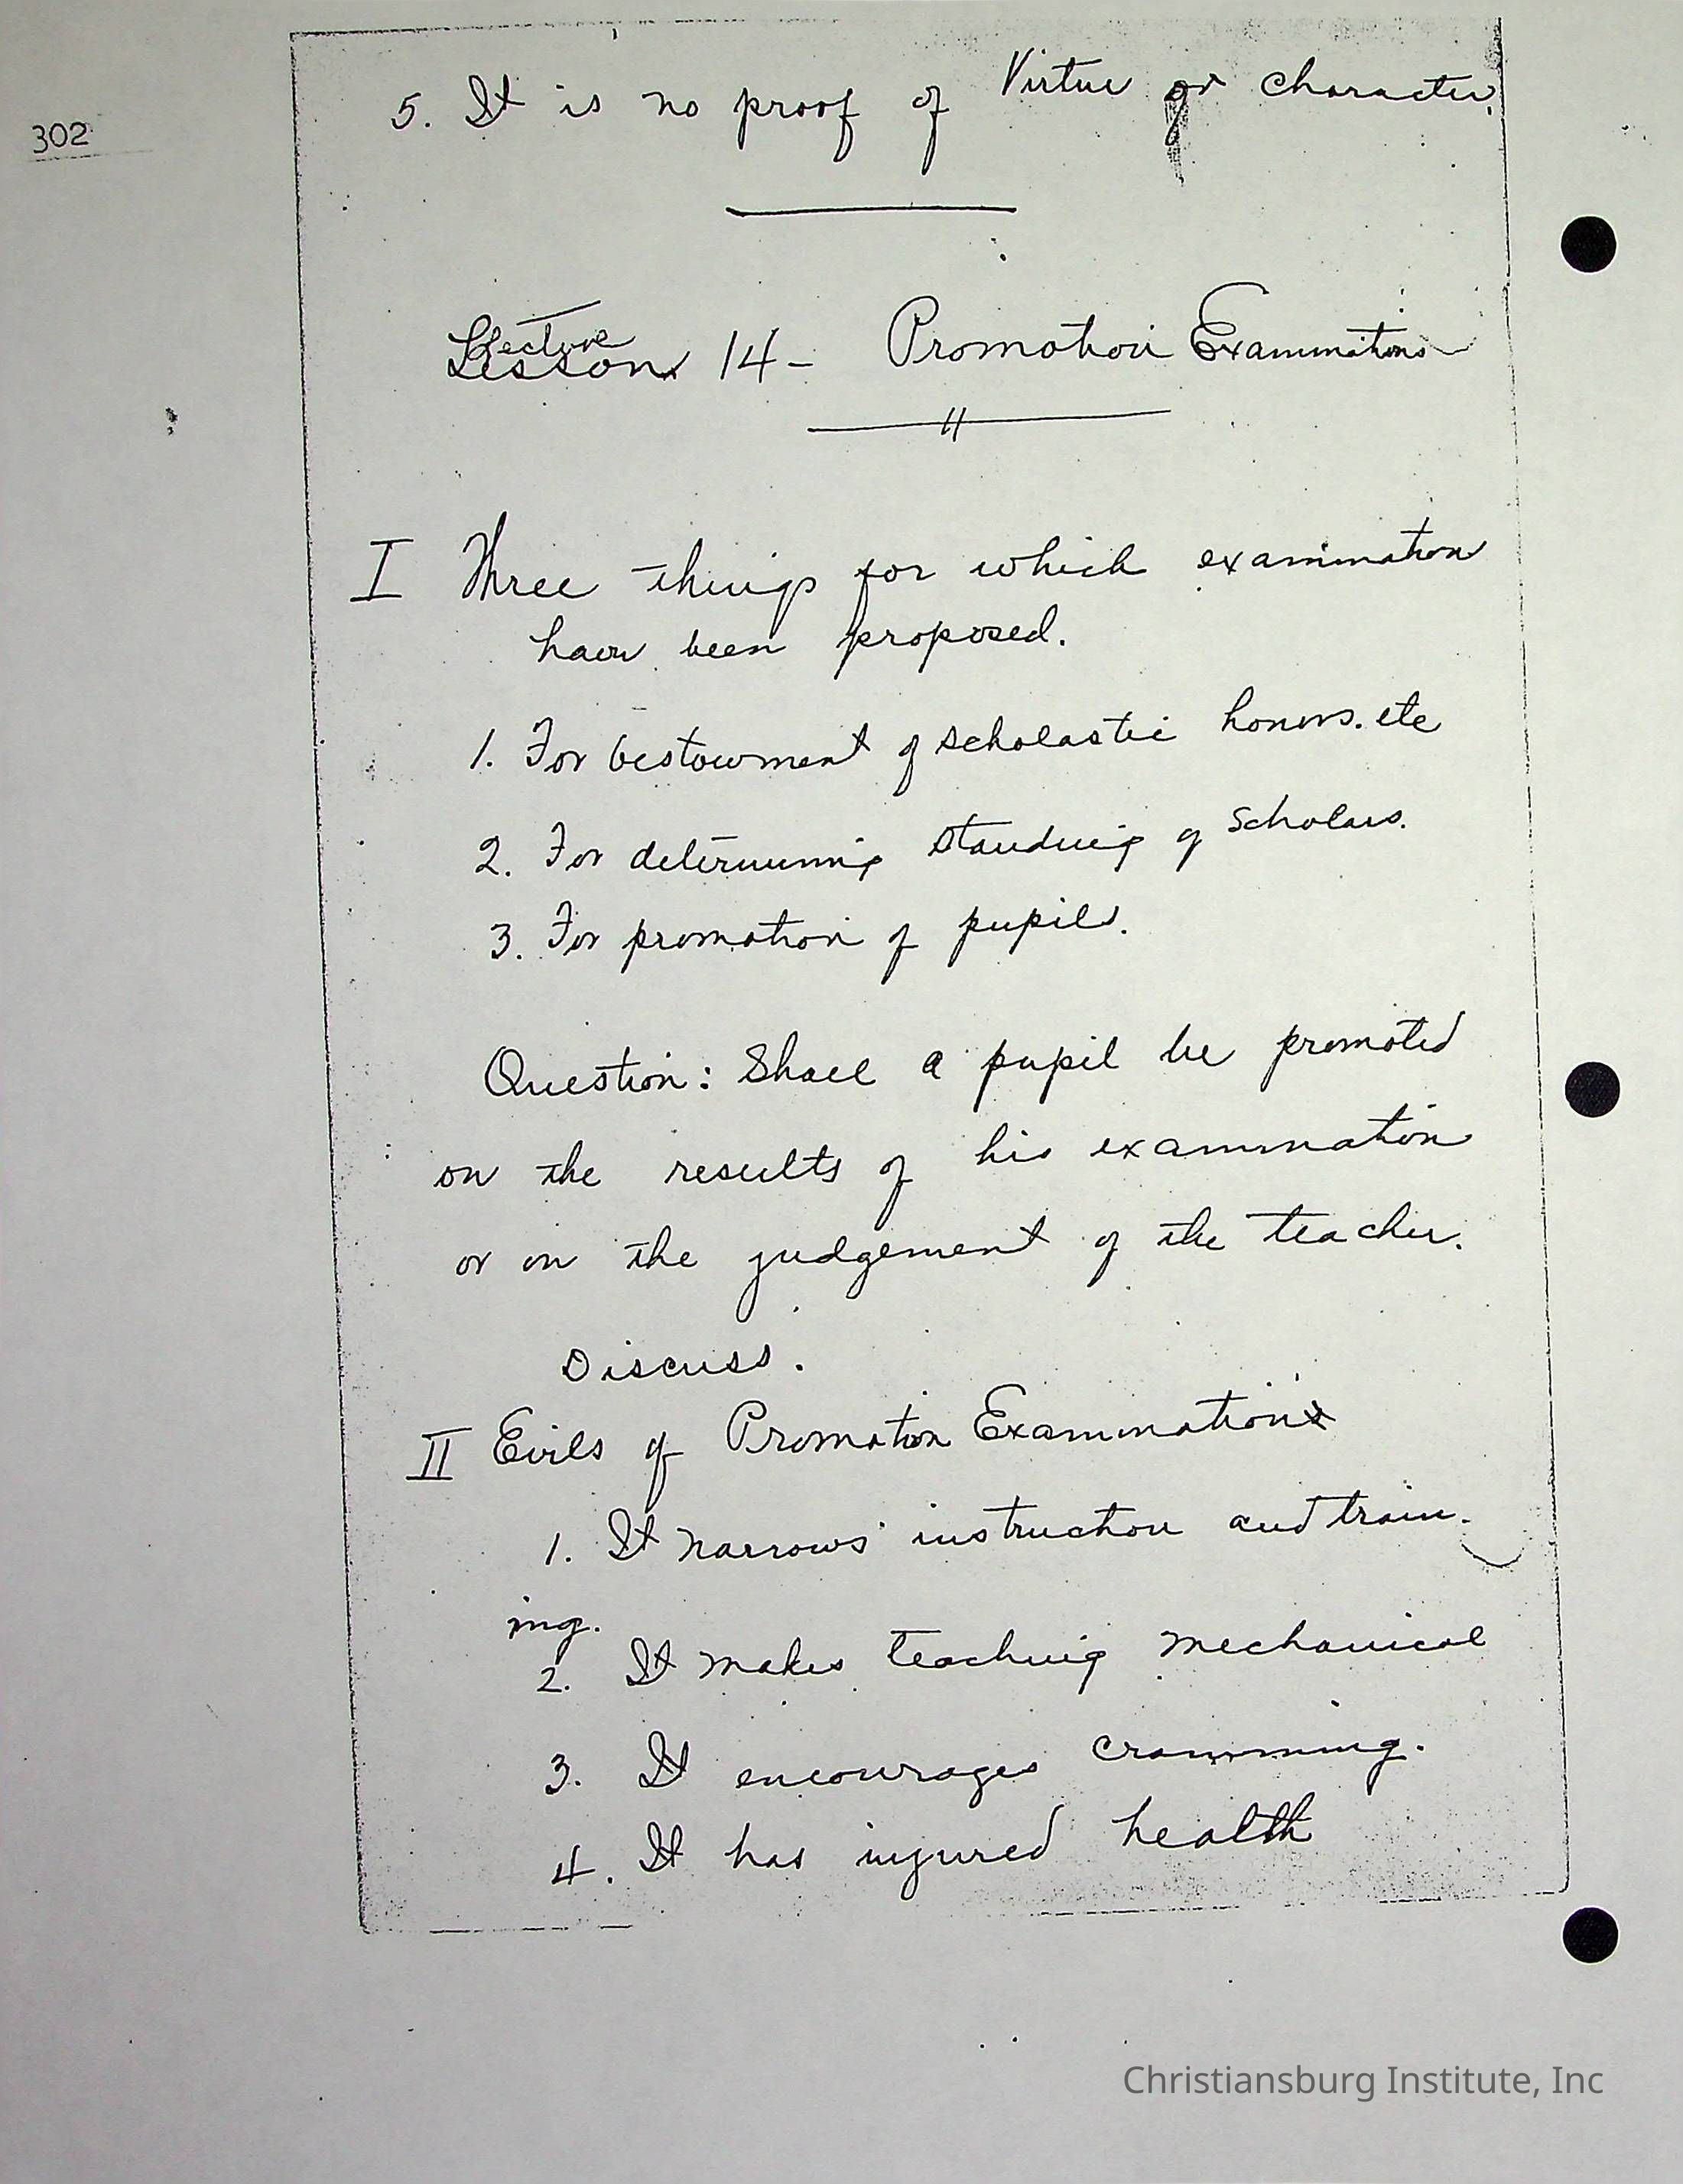 302
5. It is no proof of Virtue or character.
Lecture
Lesson 14 - Promotion Examinations
I Three things for which examination
have been proposed.
1. For bestowment of scholastic honors. etc
2. For determining standing of scholars.
3. For promotion of pupils.
Question: Shall a pupil be promoted
on the results of his examination
or on the judgement of the teacher.
Discuss.
II Evils of Promoton Examinations
1. It narrows instruction and train-
ing.
2. It makes teaching mechanical
3. It encourages cramming.
4. It has injured health
Christiansburg Institute, Inc